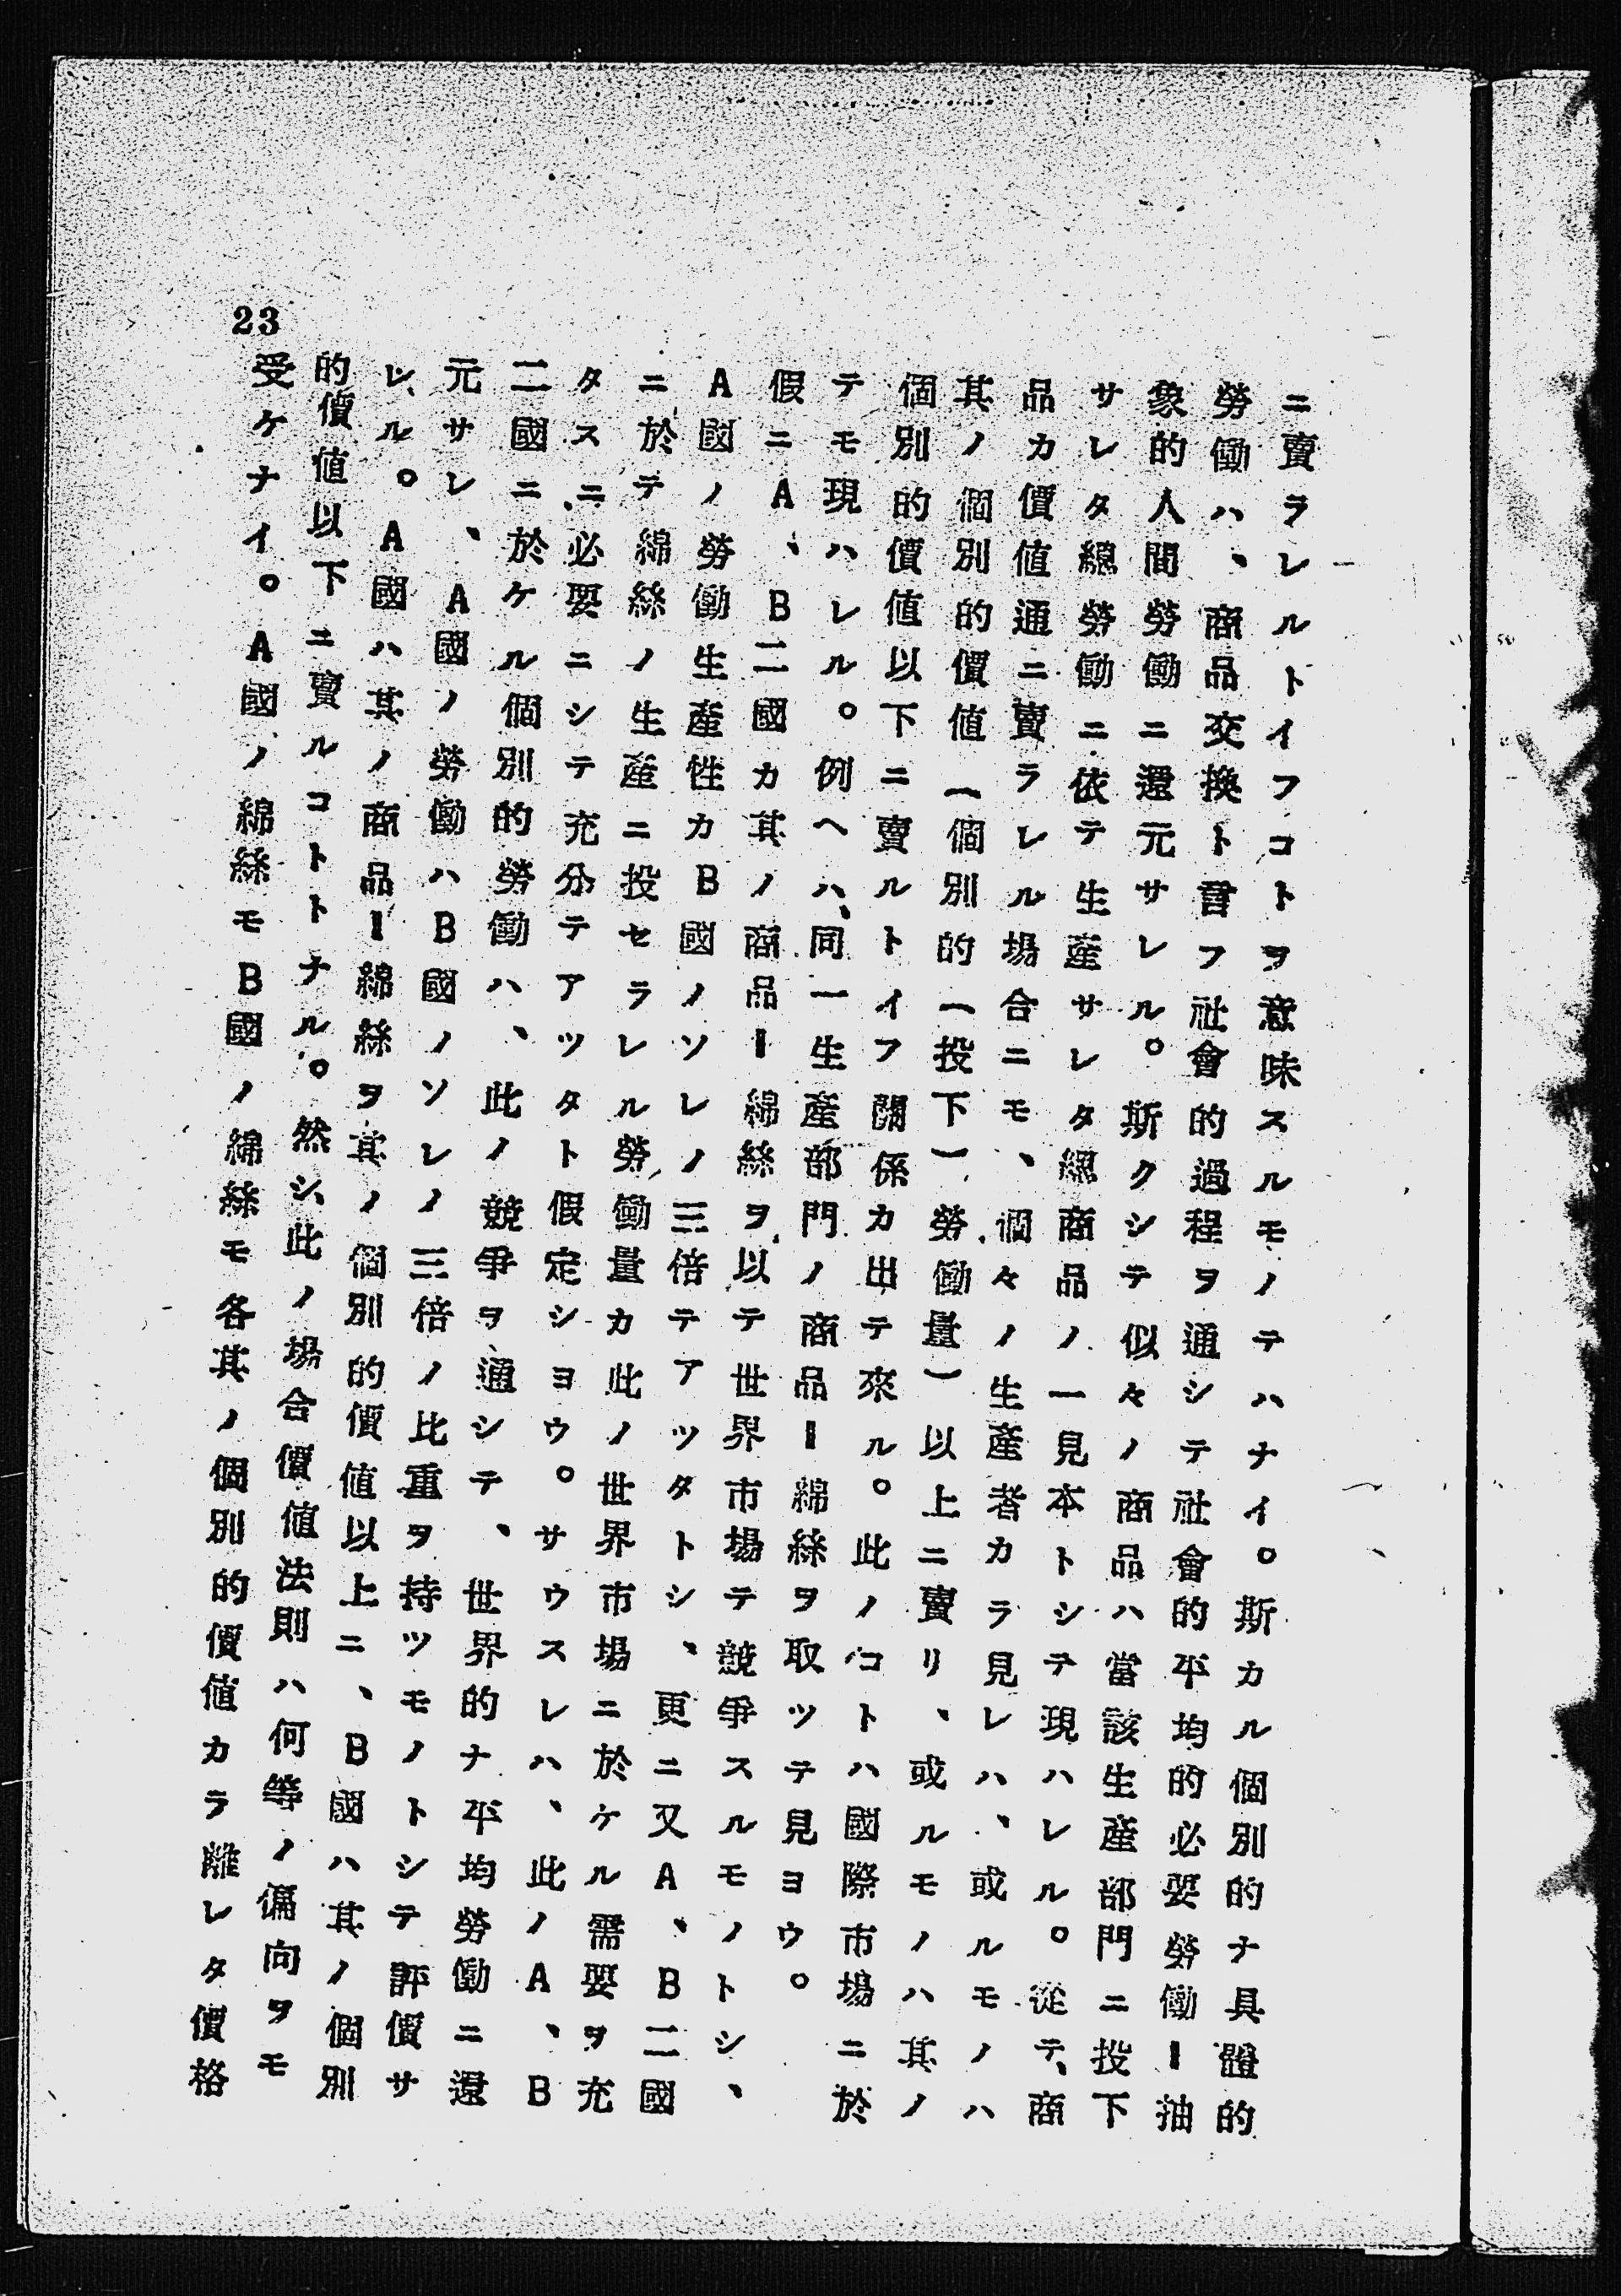 ニ賣ラレルトイフコトヲ意味スルモノテハナイ。斯カル個別的ナ具體的
勞働ハ、商品交換ト言フ社會的過程ヲ通シテ社會的平均的必要勞働ー抽
象的人間勞働ニ還元サレル。斯クシテ似々ノ商品ハ當該生産部門ニ投下
サレタ總勞働ニ依テ生産サレタ總商品ノ一見本トシテ現ハレル。從テ、商
品カ價値通ニ賣ラレル場合ニモ、個々ノ生産者カラ見レハ、或ルモノハ
其ノ個別的價値(個別的(投下)勞働量)以上ニ賣リ、或ルモノハ其ノ
個別的價値以下ニ賣ルトイフ關係カ出テ來ル。此ノコトハ國際市場ニ於
テモ現ハレル。例ヘハ、同一生産部門ノ商品ー綿絲ヲ取ツテ見ヨウ。
假ニA、B二國カ其ノ商品ー綿絲ヲ以テ世界市場テ競爭スルモノトシ、
A國ノ勞働生産性カB國ノソレノ三倍テアツタトシ、更ニ又A、B二國
ニ於テ綿絲ノ生産ニ投セラレル勞働量カ此ノ世界市場ニ於ケル需要ヲ充
タスニ必要ニシテ充分テアツタト假定シヨウ。サウスレハ、此ノA、B
二國ニ於ケル個別的勞働ハ、此ノ競爭ヲ通シテ、世界的ナ平均勞働ニ還
元サレ、A國ノ勞働ハB國ノソレノ三倍ノ比重ヲ持ツモノトシテ評價サ
レル。A國ハ其ノ商品ー綿絲ヲ其ノ個別的價値以上ニ、B國ハ其ノ個別
的價値以下ニ賣ルコトトナル。然シ、此ノ場合價値法則ハ何等ノ偏向ヲモ
受ケナイ。A國ノ綿絲モB國ノ綿絲モ各其ノ個別的價値カラ離レタ價格
23